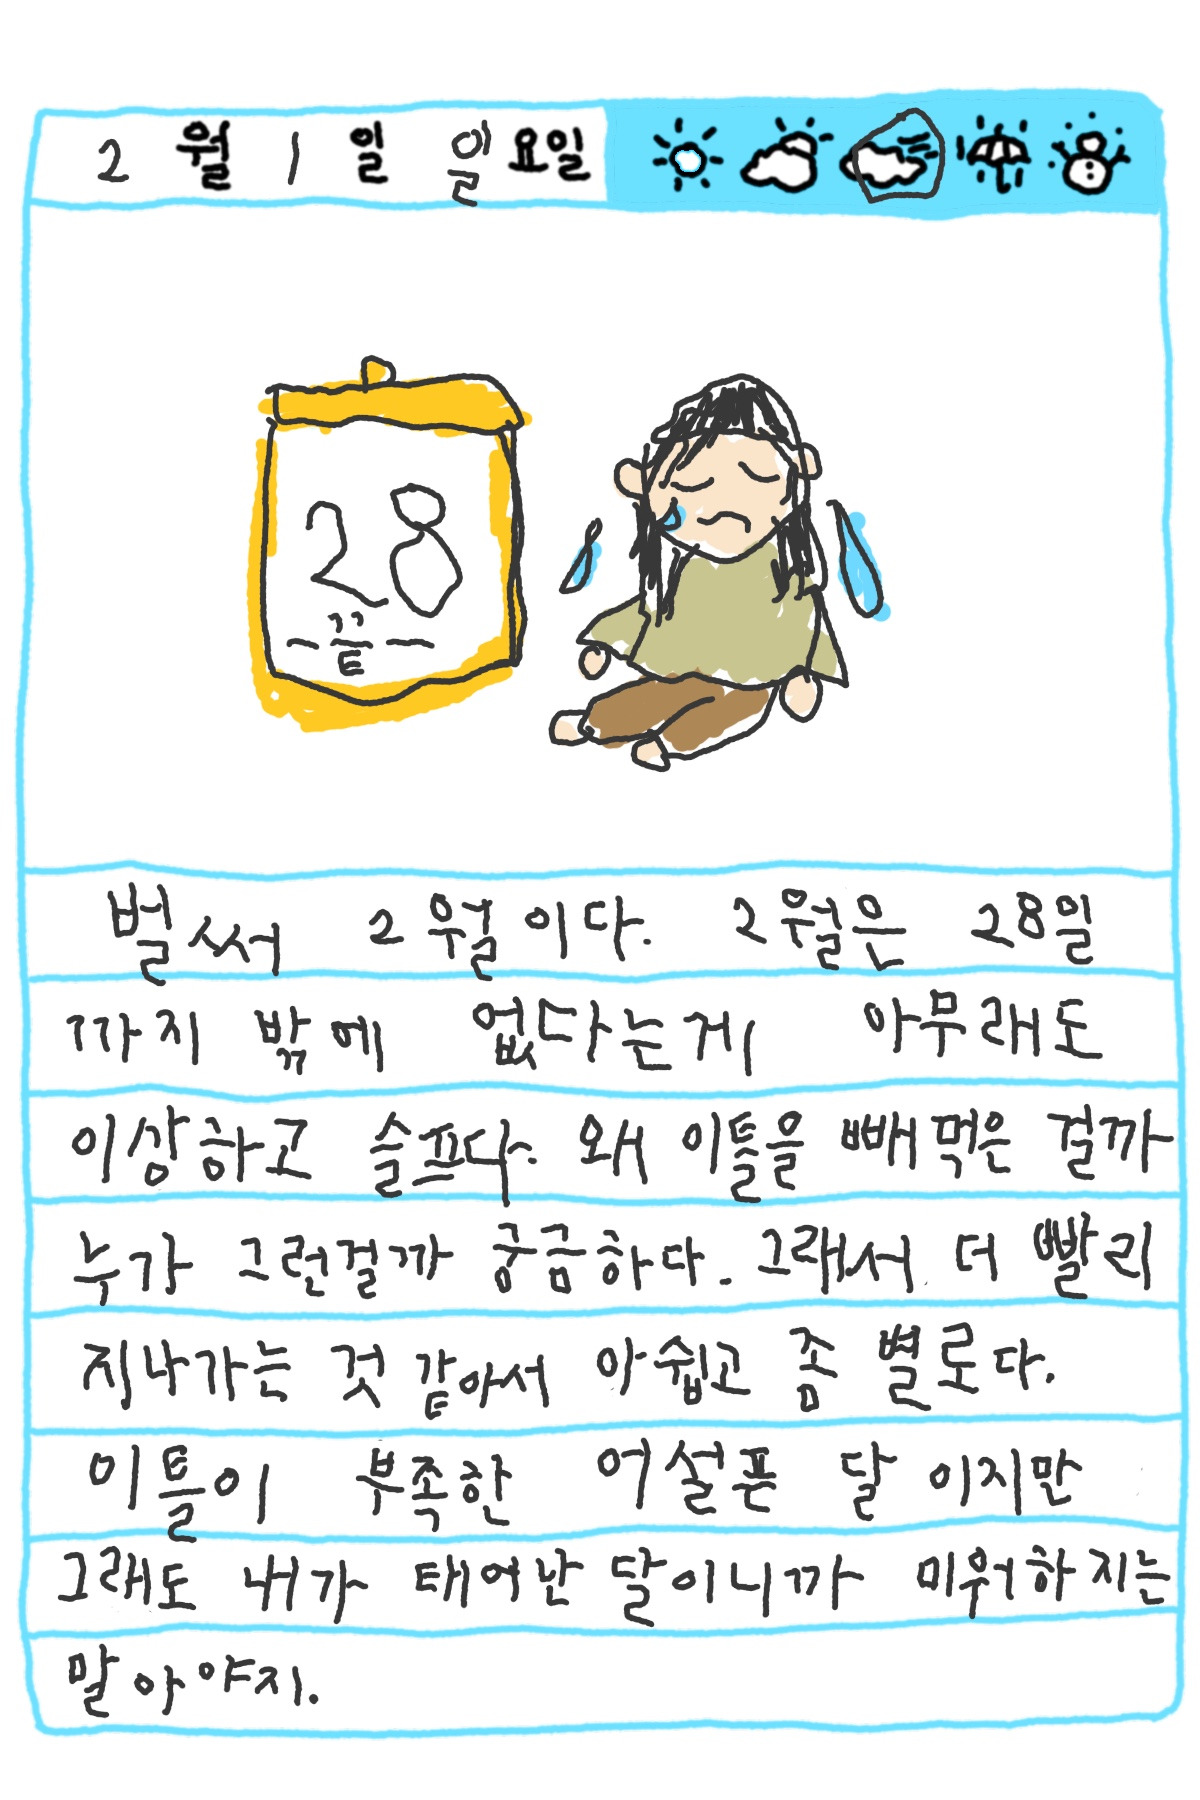 2 월 1 일 일요일
28
끝
벌써 2월이다. 2월은 28일
까지 밖에 없다는게 아무래도
이상하고 슬프다. 왜 이틀을 빼먹은 걸까
누가 그런걸까 궁금하다. 그래서 더 빨리
지나가는 것 같아서 아쉽고 좀 별로다.
이틀이 부족한 어설픈 달 이지만
그래도 내가 태어난 달이니까 미워하지는
말아야지.